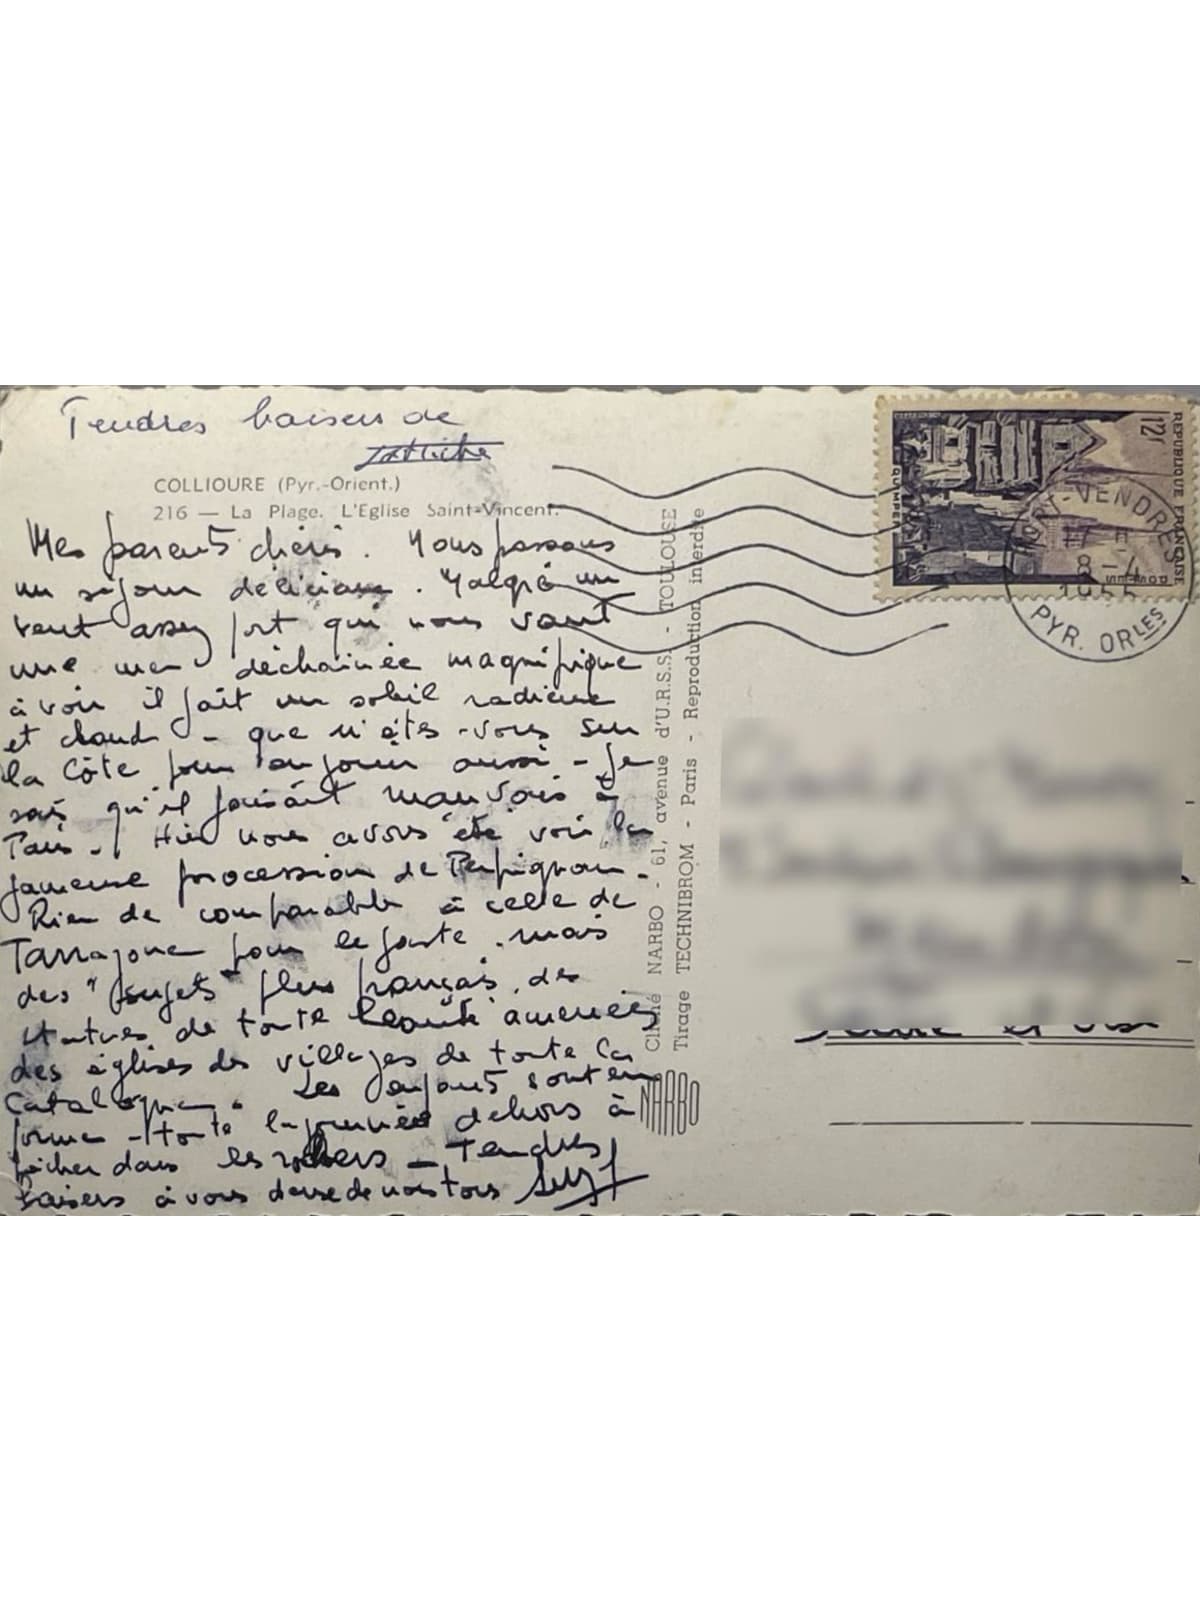 Tendres baisers de
COLLIOURE (Pyr.-Orient.)
216 — La Plage. L'Eglise Saint-Vincent.
Mes parents chéris. Nous passons
un séjour délicieux. Malgré un
vent assez fort qui nous vaut
une mer déchainée magnifique
à voir il fait un soleil radieux
et chaud - que n'êtes-vous sur
la Côte pour en jouir aussi - Je
sais qu'il faisait mauvais à
Paris - Hier nous avons été voir la
fameuse procession de Perpignan.
Rien de comparable à celle de
Tarragone pour le faste, mais
des "sujets" plus français, des
statues de toute beauté amenées
des églises des villages de toute la
Catalogne. Les enfants sont en
forme - toute la journée dehors à
pêcher dans les rochers - Tendres
baisers à vous deux de nous tous
Cliché NARBO - 61, avenue d'U.R.S.S. - TOULOUSE
Tirage TECHNIBROM - Paris - Reproduction interdite
NARBO
REPUBLIQUE FRANÇAISE
12f
QUIMPER
POSTES
PORT-VENDRES
8-4
1955
PYR. ORLES